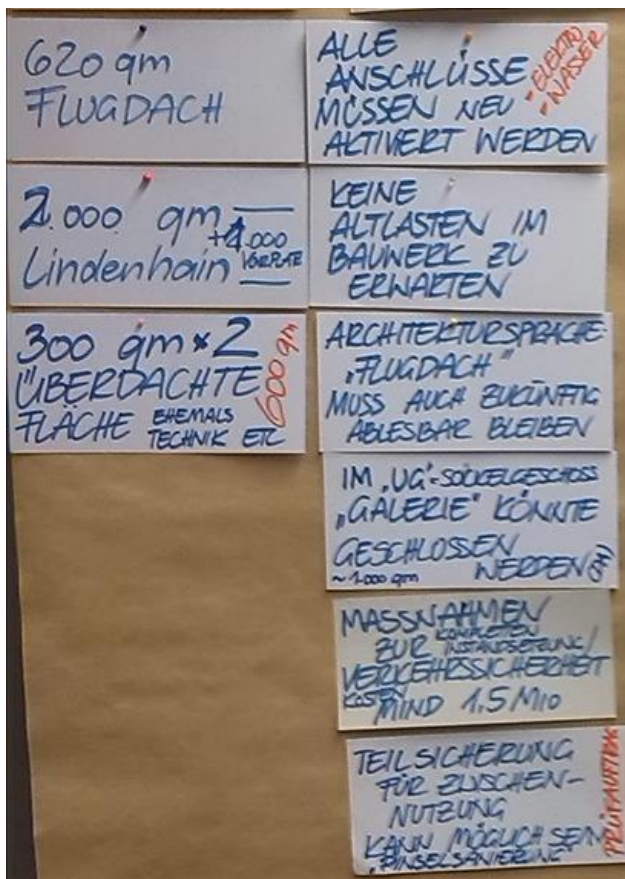 620 qm
FLUGDACH
2.000 qm
+1.000
VORPLATZ
Lindenhain
300 qm * 2
ÜBERDACHTE
FLÄCHE EHEMALS
TECHNIK ETC
600 qm
ALLE
ANSCHLÜSSE
MÜSSEN NEU
AKTIVIERT WERDEN
- ELEKTRO
- WASSER
KEINE
ALTLASTEN IM
BAUWERK ZU
ERWARTEN
ARCHITEKTURSPRACHE:
"FLUGDACH"
MUSS AUCH ZUKÜNFTIG
ABLESBAR BLEIBEN
IM "UG"-SOCKELGESCHOSS
"GALERIE" KÖNNTE
GESCHLOSSEN
~1.000 qm WERDEN
MASSNAHMEN
ZUR KOMPLETTEN
INSTANDSETZUNG/
VERKEHRSSICHERHEIT
KOSTEN
MIND 1.5 MIO
TEILSICHERUNG
FÜR ZWISCHEN-
NUTZUNG
KANN MÖGLICH SEIN
"PINSELSANIERUNG"
PRÜFAUFTRAG